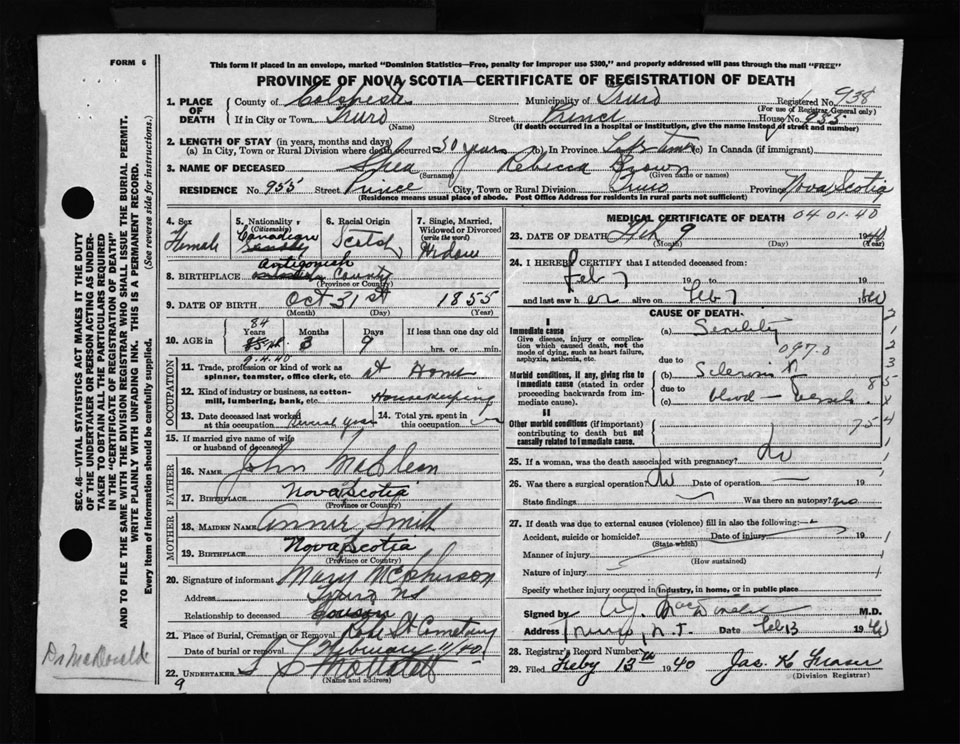 FORM 6
This form if placed in an envelope, marked "Dominion Statistics—Free, penalty for improper use $300," and properly addressed will pass through the mail "FREE"
PROVINCE OF NOVA SCOTIA—CERTIFICATE OF REGISTRATION OF DEATH
SEC. 46—VITAL STATISTICS ACT MAKES IT THE DUTY
OF THE UNDERTAKER OR PERSON ACTING AS UNDER-
TAKER TO OBTAIN ALL THE PARTICULARS REQUIRED
IN THE "CERTIFICATE OF REGISTRATION OF DEATH"
AND TO FILE THE SAME WITH THE DIVISION REGISTRAR WHO SHALL ISSUE THE BURIAL PERMIT.
WRITE PLAINLY WITH UNFADING INK. THIS IS A PERMANENT RECORD.
Every item of information should be carefully supplied. (See reverse side for instructions.)
Dr McDonald
1. PLACE OF DEATH County of Colchester Municipality of Truro Registered No. 938
(For use of Registrar General only)
If in City or Town Truro Street Prince House No. 955
(Name) (If death occurred in a hospital or institution, give the name instead of street and number)
2. LENGTH OF STAY (in years, months and days)
(a) In City, Town or Rural Division where death occurred 50 years (b) In Province Life time (c) In Canada (if immigrant)
3. NAME OF DECEASED Shea Rebecca Brown
(Surname) (Given name or names)
RESIDENCE No. 955 Street Prince City, Town or Rural Division Truro Province Nova Scotia
(Residence means usual place of abode. Post Office Address for residents in rural parts not sufficient)
4. Sex Female
5. Nationality (Citizenship) Canadian
6. Racial Origin Scotch
7. Single, Married, Widowed or Divorced (write the word) Widow
8. BIRTHPLACE Antigonish County
(Province or County)
9. DATE OF BIRTH Oct 31st 1855
(Month) (Day) (Year)
10. AGE in 84 Years 3 Months 9 Days If less than one day old
hrs. or min.
9.4.40
OCCUPATION
11. Trade, profession or kind of work as spinner, teamster, office clerk, etc. At Home
12. Kind of industry or business, as cotton-mill, lumbering, bank, etc. Housekeeping
13. Date deceased last worked at this occupation 14. Total yrs. spent in this occupation
15. If married give name of wife or husband of deceased
FATHER
16. Name John McLean
17. Birthplace Nova Scotia
(Province or Country)
MOTHER
18. Maiden Name Annie Smith
19. Birthplace Nova Scotia
(Province or Country)
20. Signature of informant Mary McPherson
Address Truro NS
Relationship to deceased Cousin
21. Place of Burial, Cremation or Removal Robie St Cemetery
Date of burial February 11/40
22. Undertaker
(Name and address)
9
MEDICAL CERTIFICATE OF DEATH 04 01 40
23. DATE OF DEATH Feb 9 1940
(Month) (Day) (Year)
24. I HEREBY CERTIFY that I attended deceased from:
Feb 7 19 to 19
and last saw her alive on Feb 7 1940
CAUSE OF DEATH
I
Immediate cause (a) Senility
Give disease, injury or complication which caused death, not the mode of dying, such as heart failure, asphyxia, asthenia, etc.
097.0
due to
Morbid conditions, if any, giving rise to immediate cause (stated in order proceeding backwards from immediate cause). (b) Sclerosis of
due to
(c) blood-vessels
II
Other morbid conditions (if important) contributing to death but not causally related to immediate cause.
25. If a woman, was the death associated with pregnancy? No
26. Was there a surgical operation? No Date of operation —
State findings Was there an autopsy? no
27. If death was due to external causes (violence) fill in also the following:—
Accident, suicide or homicide? Date of injury 19
(State which)
Manner of injury
(How sustained)
Nature of injury
Specify whether injury occurred in industry, in home, or in public place
Signed by MacDonald M.D.
Address Truro, N.S. Date Feb 13 1940
28. Registrar's Record Number
29. Filed Feby 13th 1940 Jas. K Fraser
(Division Registrar)